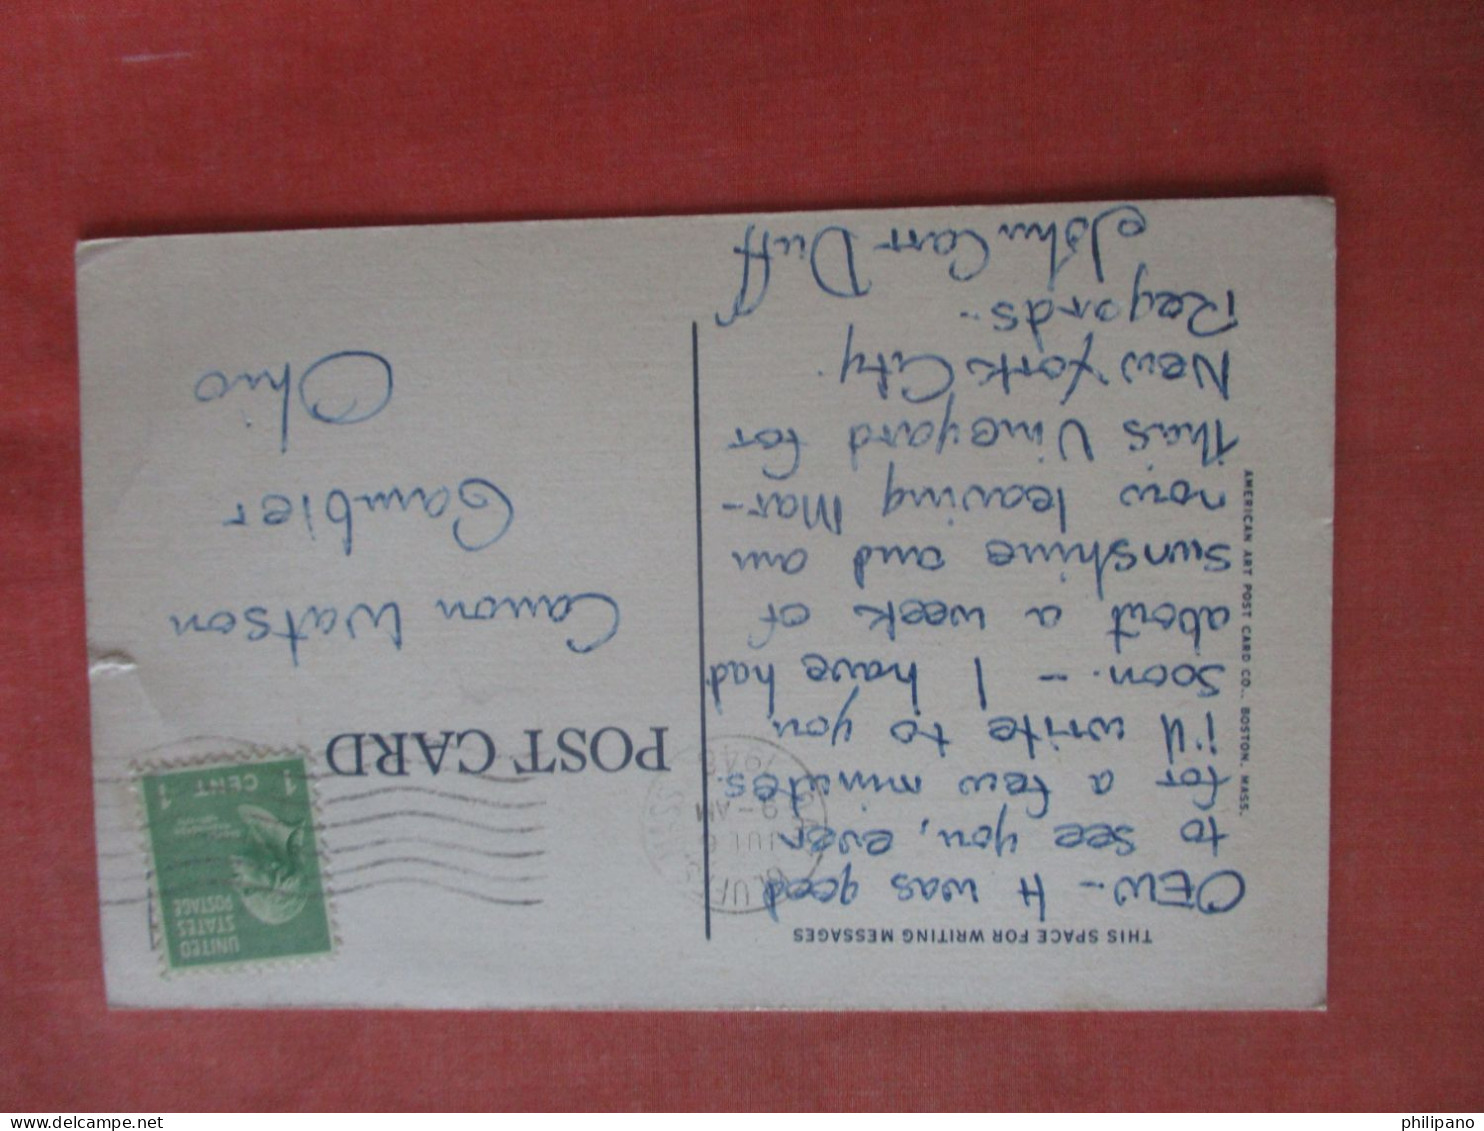 THIS SPACE FOR WRITING MESSAGES
OEW - It was good
to see you, even
for a few minutes.
i'll write to you
soon. - I have had
about a week of
sunshine and am
now leaving Mar-
thas Vineyard for
New York City.
Regards -
John Carr Duff
AMERICAN ART POST CARD CO., BOSTON, MASS.
POST CARD
UNITED
STATES
POSTAGE
1 CENT 1
BLUFFS
JUL 6
9 - AM
1948
MASS
Canon Watson
Gambier
Ohio
philipano